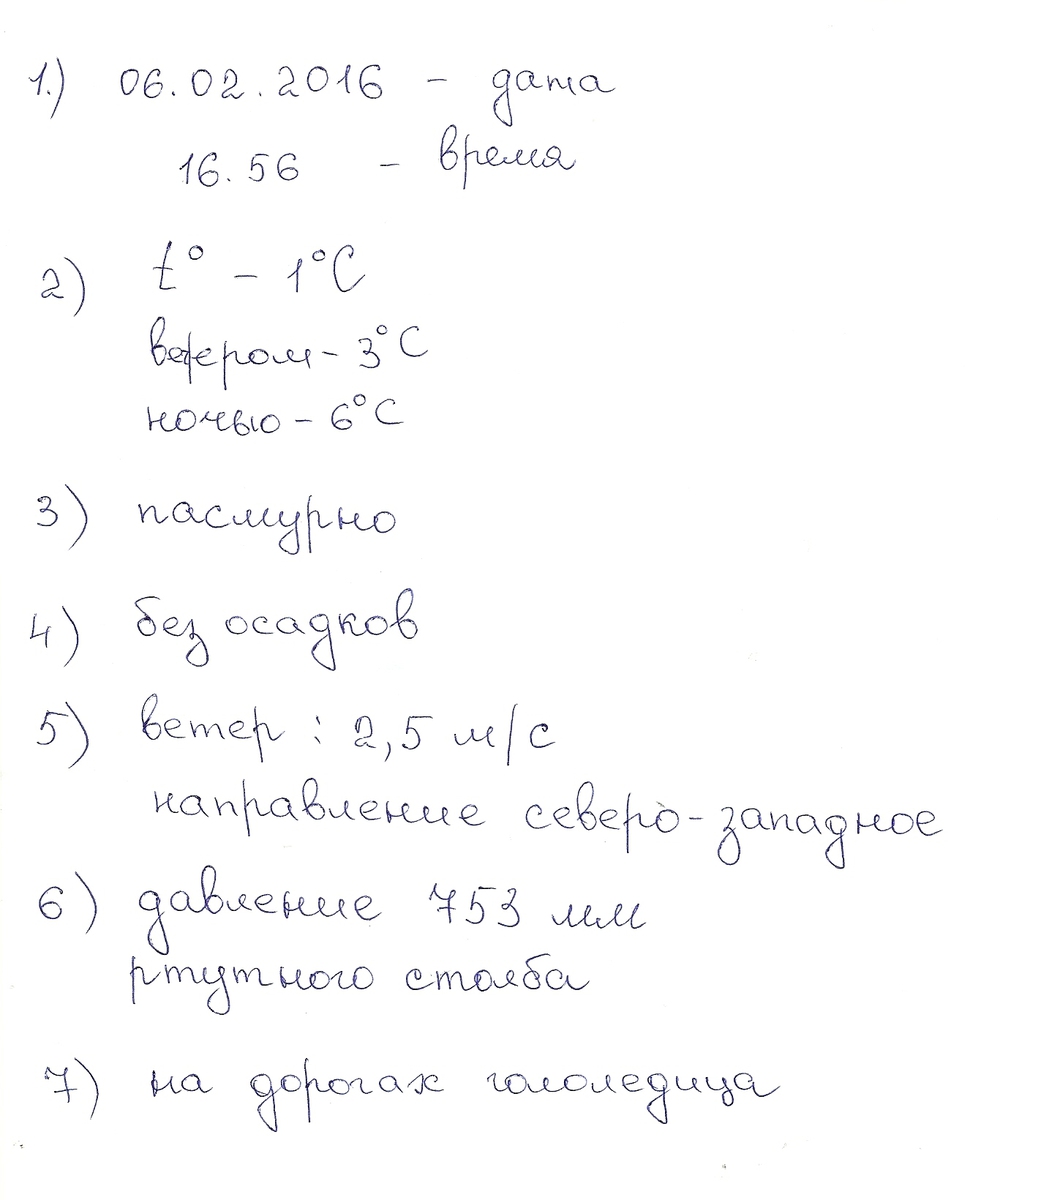 1.) 06.02.2016 - дата
16.56 - время
2) t° - 1°C
вечером - 3°C
ночью - 6°C
3) пасмурно
4) без осадков
5) ветер : 2,5 м/с
направление северо-западное
6) давление 753 мм
ртутного столба
7) на дорогах гололедица